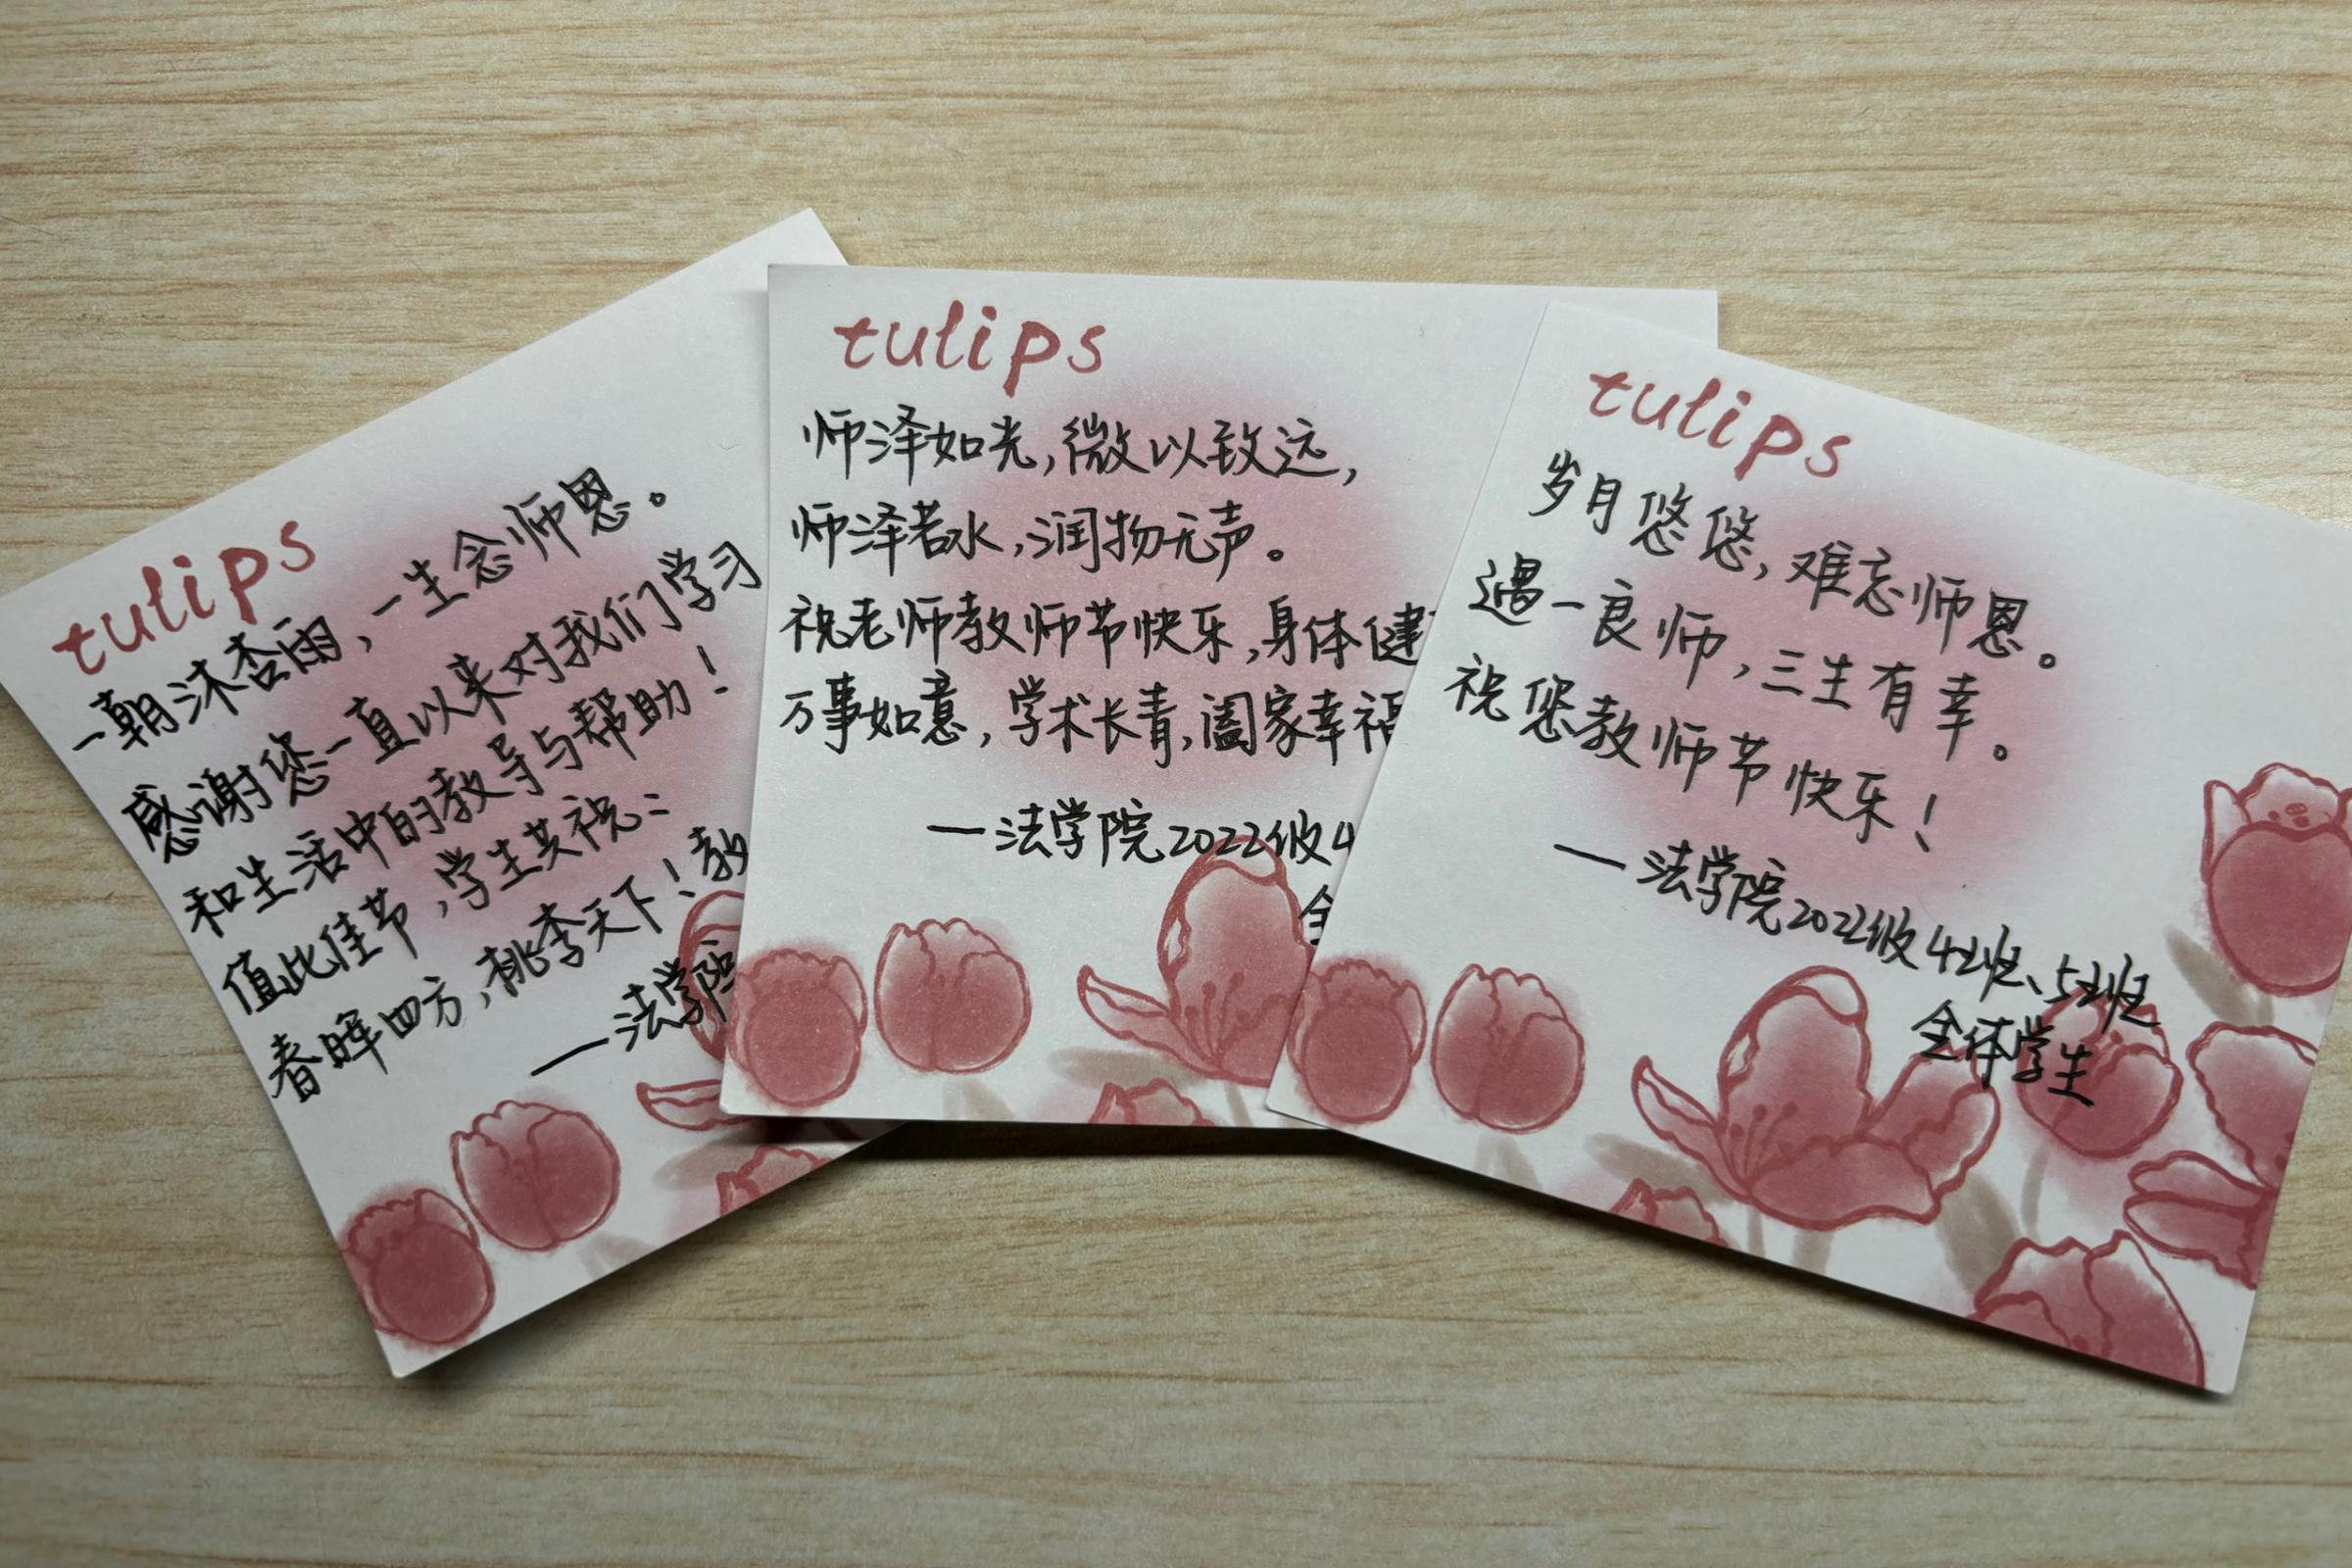 tulips
一朝沐杏雨，一生念师恩。
感谢您一直以来对我们学习
和生活中的教导与帮助！
值此佳节，学生共祝：
春晖四方，桃李天下！教
—法学院
tulips
师泽如光，微以致远，
师泽若水，润物无声。
祝老师教师节快乐，身体健
万事如意，学术长青，阖家幸福
—法学院2022级4
全
tulips
岁月悠悠，难忘师恩。
遇一良师，三生有幸。
祝您教师节快乐！
—法学院2022级4班、5班
全体学生